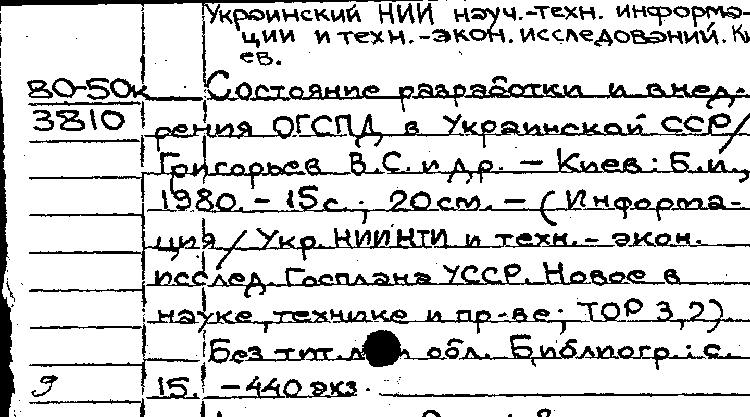 Украинский НИИ науч.-техн. информа-
ции и техн.-экон. исследований. Ки
ев.
80-50к Состояние разработки и внед-
3810 рения ОГСПД в Украинской ССР/
Григорьев В.С. и др. – Киев: Б.и.,
1980. – 15 с.; 20 см. – (Информа-
ция / Укр. НИИНТИ и техн.- экон.
исслед. Госплана УССР. Новое в
науке, технике и пр-ве; ТОР 3,2)
Без тит. л. обл. Библиогр.: с.
9 15. – 440 экз.